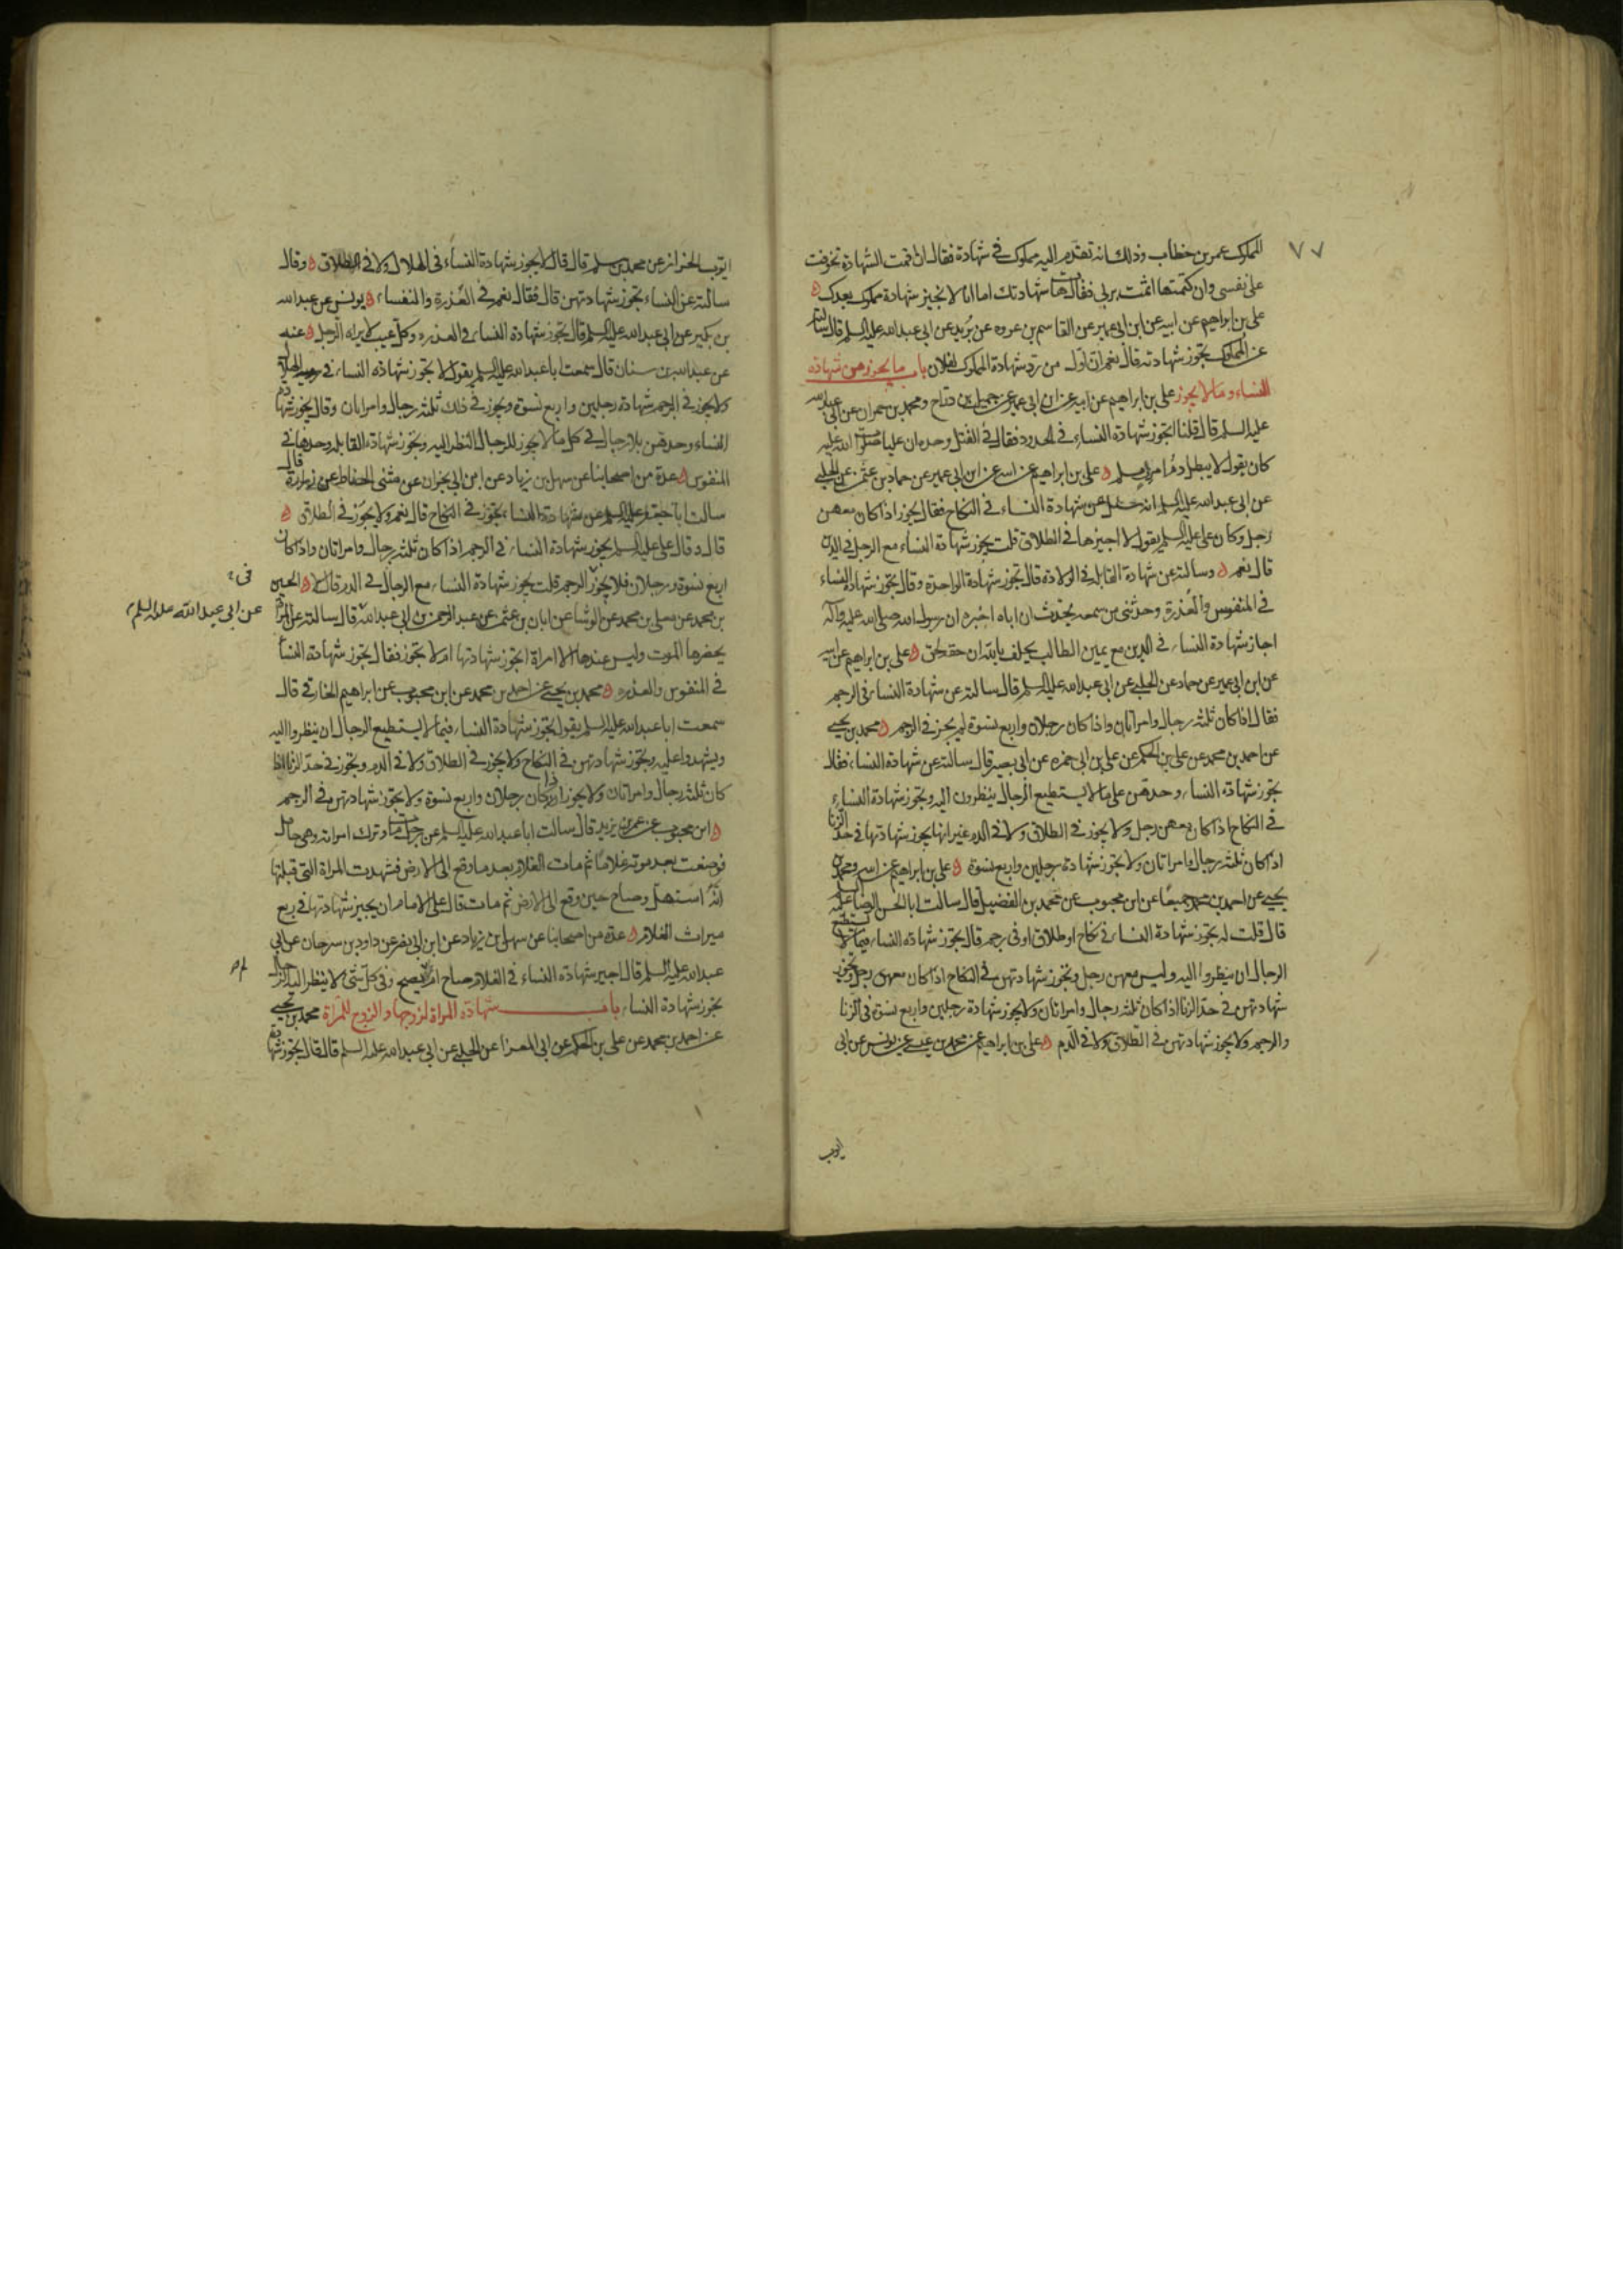 ٧٧
المملوك عمر بن خطاب وذلك انه تقدم اليه مملوك في شهادة فقال ان اقمت الشهادة تخوفت
على نفسي وان كتمتها اثمت بربي فقال هات شهادتك اما انا لا نجيز شهادة مملوك بعدك
علي بن ابراهيم عن ابيه عن ابن ابي عمير عن القاسم بن عروه عن بريد عن ابي عبدالله عليه السلم قال سالته
عن المملوك تجوز شهادته قال نعم ان اول من رد شهادة المملوك لفلان باب ما يجوز من شهادة
النساء وما لا يجوز علي بن ابراهيم عن ابيه عن ابن ابي عمير عن جميل بن دراج ومحمد بن حمران عن ابي عبدالله
عليه السلم قال قلنا اتجوز شهادة النساء في الحدود فقال في القتل وحده ان عليا صلوات الله عليه
كان يقول لا يبطل دم امرء مسلم علي بن ابراهيم عن ابيه عن ابن ابي عمير عن حماد بن عثمن عن الحلبي
عن ابي عبدالله عليه السلم انه سئل عن شهادة النساء في النكاح فقال يجوز اذا كان معهن
رجل وكان علي عليه السلم يقول لا اجيزها في الطلاق قلت يجوز شهادة النساء مع الرجل في الدين
قال نعم وسالته عن شهادة القابلة في الولادة قال تجوز شهادة الواحدة وقال يجوز شهادة النساء
في المنفوس والعذرة وحدثني من سمعه يحدث ان اباه اخبره ان رسول الله صلى الله عليه وآله
اجاز شهادة النساء في الدين مع يمين الطالب يحلف بالله ان حقه لحق علي بن ابراهيم عن ابيه
عن ابن ابي عمير عن حماد عن الحلبي عن ابي عبدالله عليه السلم قال سالته عن شهادة النساء في الرجم
فقال اذا كان ثلثة رجال وامراتان واذا كان رجلان واربع نسوة لم يجز في الرجم محمد بن يحيى
عن احمد بن محمد عن علي بن الحكم عن علي بن ابي حمزه عن ابي بصير قال سالته عن شهادة النساء فقال
تجوز شهادة النساء وحدهن على ما لا يستطيع الرجال ينظرون اليه وتجوز شهادة النساء
في النكاح اذا كان معهن رجل ولا يجوز في الطلاق ولا في الدم غير انها يجوز شهادتها في حد الزنا
اذا كان ثلثة رجال وامراتان ولا تجوز شهادة رجلين واربع نسوة علي بن ابراهيم عن ابيه ومحمد بن
يحيى عن احمد بن محمد جميعا عن ابن محبوب عن محمد بن الفضيل قال سالت ابا الحسن الرضا عليه السلم
قال قلت له يجوز شهادة النساء في نكاح او طلاق او في رجم قال تجوز شهادة النساء فيما لا يستطيع
الرجال ان ينظروا اليه وليس معهن رجل وتجوز شهادتهن في النكاح اذا كان معهن رجل وتجوز
شهادتهن في حد الزنا اذا كان ثلثة رجال وامراتان ولا يجوز شهادة رجلين واربع نسوة في الزنا
والرجم ولا يجوز شهادتهن في الطلاق ولا في الدم علي بن ابراهيم عن محمد بن عيسى عن يونس عن ابي
ايوب
ايوب الخزاز عن محمد بن مسلم قال قال لا يجوز شهادة النساء في الهلال ولا في الطلاق وقال
سالته عن النساء تجوز شهادتهن قال فقال نعم في العذرة والنفساء يونس عن عبدالله
بن بكير عن ابي عبدالله عليه السلم قال تجوز شهادة النساء في العذره وكل عيب لا يراه الرجل عنه
عن عبدالله بن سنان قال سمعت ابا عبدالله عليه السلم يقول لا تجوز شهادة النساء في رويه الهلال
ولا يجوز في الرجم شهادة رجلين واربع نسوة ويجوز في ذلك ثلثة رجال وامراتان وقال يجوز شهادة
النساء وحدهن بلا رجال في كل ما لا يجوز للرجال النظر اليه وتجوز شهادة القابله وحدها في
المنفوس عدة من اصحابنا عن سهل بن زياد عن ابن ابي نجران عن مثنى الحناط عن زرارة قال
سالت ابا جعفر عليه السلم عن شهادة النساء يجوز في النكاح قال نعم ولا يجوز في الطلاق
قال وقال علي عليه السلم يجوز شهادة النساء في الرجم اذا كان ثلثة رجال وامراتان واذا كان
اربع نسوة ورجلان فلا يجوز الرجم قلت يجوز شهادة النساء مع الرجال في الدم قال لا الحسين
بن محمد عن معلى بن محمد عن الوشاء عن ابان بن عثمن عن عبد الرحمن بن ابي عبدالله قال سالته عن المراة
عن ابي عبدالله عليه السلم
يحضرها الموت وليس عندها الا امراة اتجوز شهادتها ام لا تجوز فقال تجوز شهادة النساء
في المنفوس والعذره محمد بن يحيى عن احمد بن محمد عن ابن محبوب عن ابراهيم الخارقي قال
سمعت ابا عبدالله عليه السلم يقول تجوز شهادة النساء فيما لا يستطيع الرجال ان ينظروا اليه
ويشهدوا عليه ويجوز شهادتهن في النكاح ولا يجوز في الطلاق ولا في الدم وتجوز في حد الزنا اذا
كان ثلثة رجال وامراتان ولا يجوز اذا كان رجلان واربع نسوة ولا تجوز شهادتهن في الرجم
ابن محبوب عن عمر بن يزيد قال سالت ابا عبدالله عليه السلم عن رجل مات وترك امراته وهي حامل
فوضعت بعد موته غلاما ثم مات الغلام بعد ما وقع الى الارض فشهدت المراة التي قبلتها
انه استهل وصاح حين وقع الى الارض ثم مات قال على الامام ان يجيز شهادتها في ربع
ميراث الغلام عدة من اصحابنا عن سهل بن زياد عن ابن ابي نصر عن داود بن سرحان عن ابي
عبدالله عليه السلم قال اجيز شهادة النساء في الغلام صاح او لم يصح وفي كل شئ لا ينظر اليه الرجال
تجوز شهادة النساء باب شهادة المراة لزوجها والزوج للمراة محمد بن يحيى
عن احمد بن محمد عن علي بن الحكم عن ابي المعزا عن الحلبي عن ابي عبدالله عليه السلم قال قال تجوز شهادة